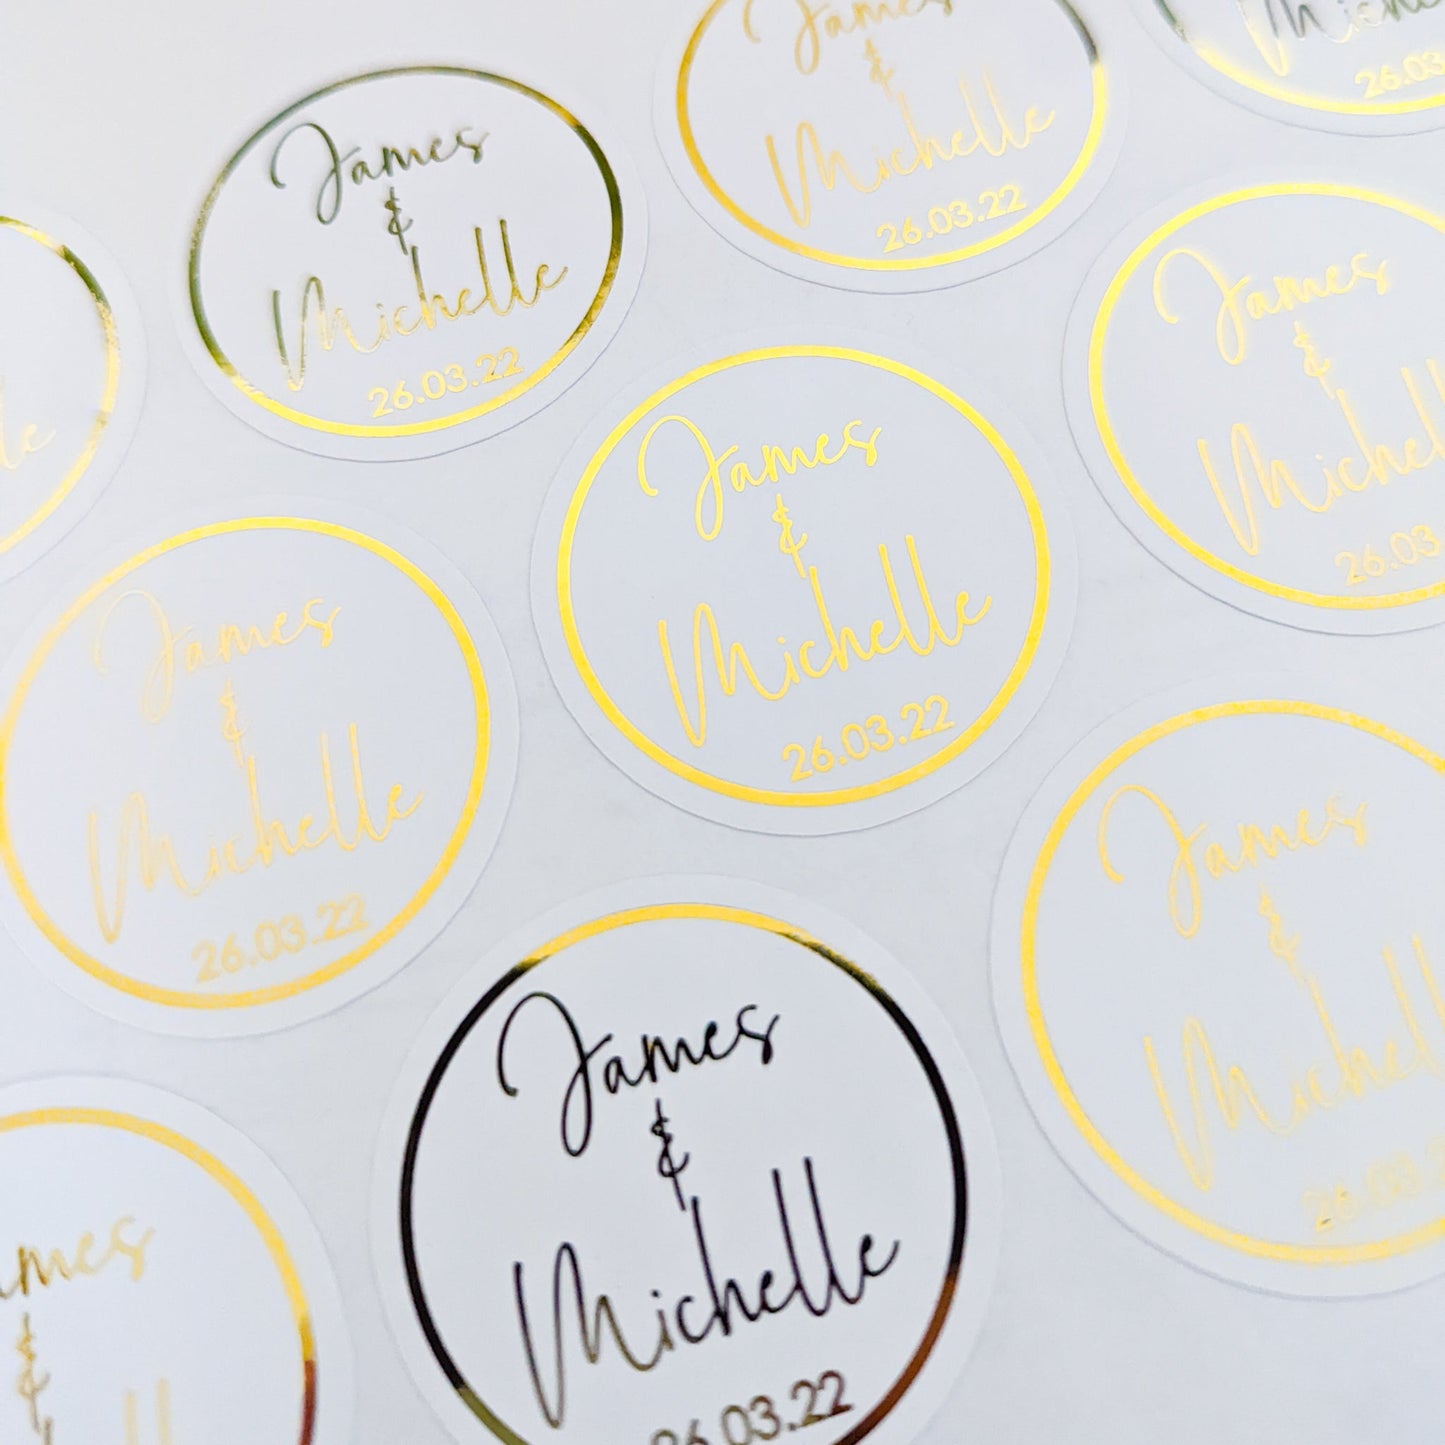 James
&
Michelle
26.03.22
James
&
Michelle
26.03.22
Michelle
26.03
James
&
Michelle
26.03.22
James
&
Michelle
26.03
James
&
Michelle
26.03.22
James
&
Michelle
26.03.2
James
&
Michelle
26.03.22
ames
&